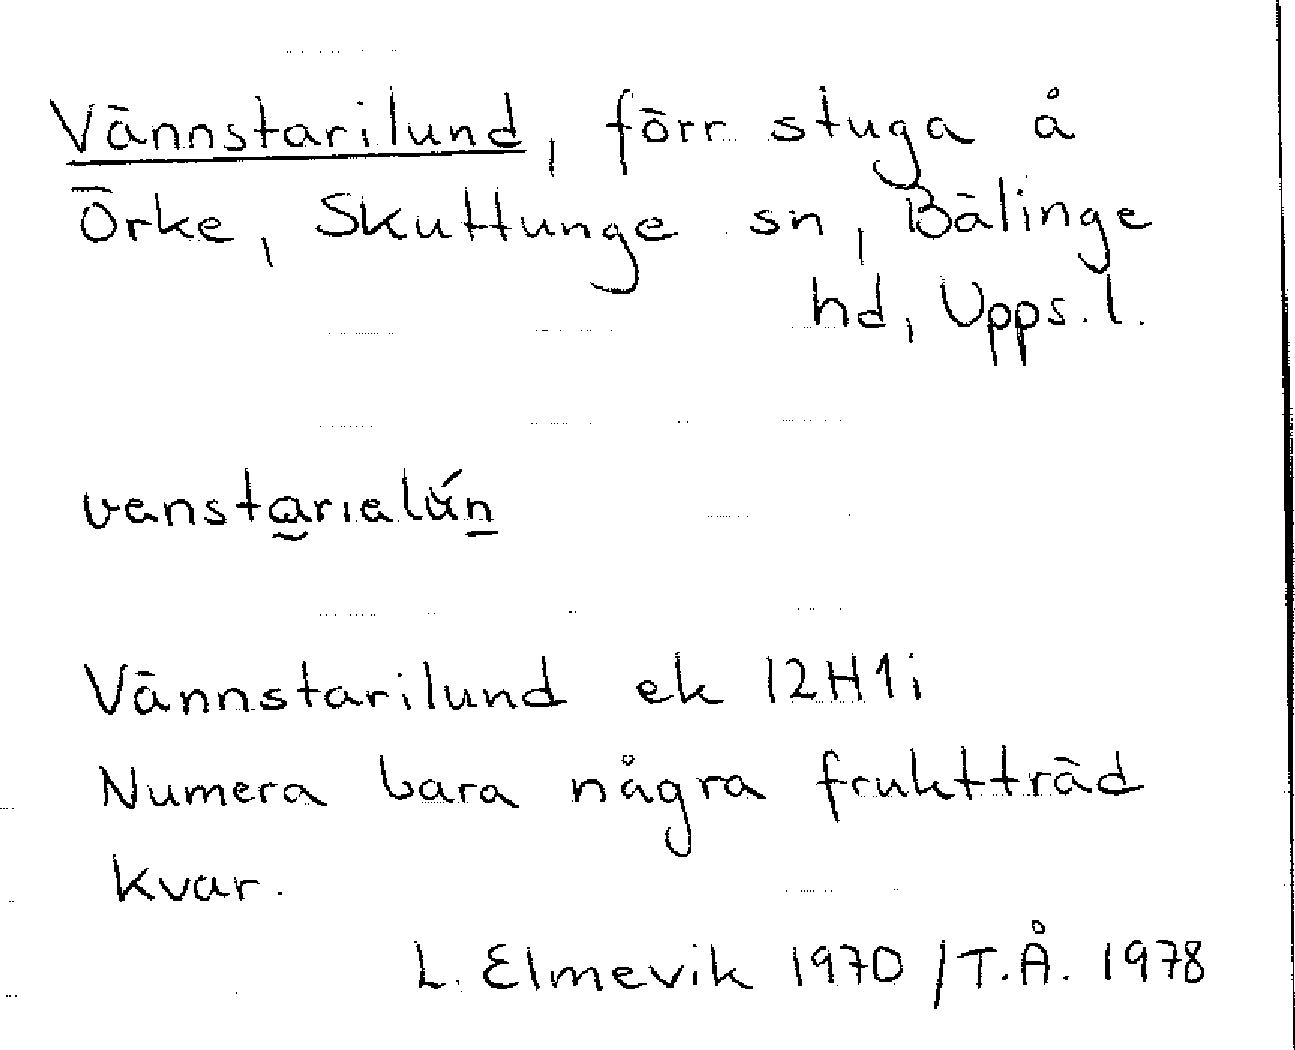 Vännstarilund, förr stuga å
Örke, Skuttunge sn, Bälinge
hd, Upps. l.
vanstarialún
Vännstarilund ek 12H1i
Numera bara några fruktträd
kvar.
L. Elmevik 1970 / T.Å. 1978